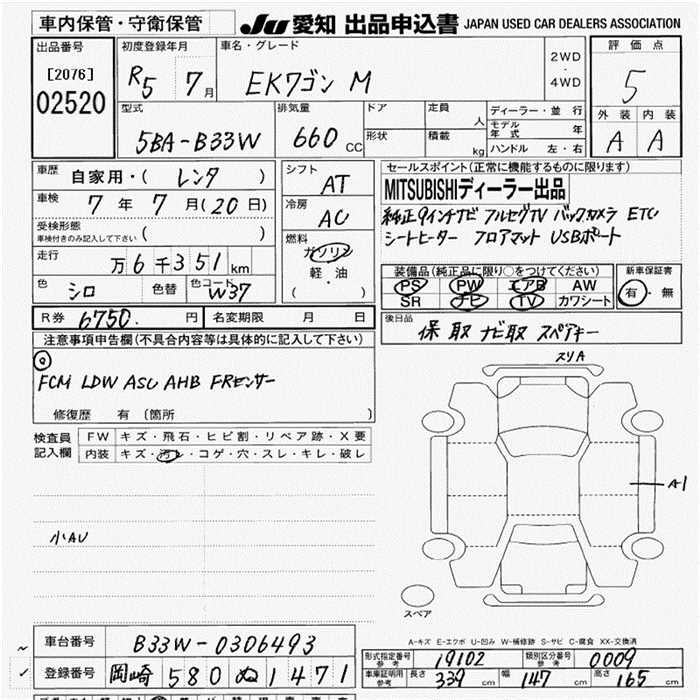 車内保管・守衛保管 JU 愛知 出品申込書 JAPAN USED CAR DEALERS ASSOCIATION
出品番号 [2076] 02520
初度登録年月 R5 7月
車名・グレード EKワゴン M
2WD・4WD
評価点 5
外装 A 内装 A
型式 5BA-B33W
排気量 660 CC
ドア 形状
定員 人 積載 kg
ディーラー・並行
モデル年式 年
ハンドル 左・右
車歴 自家用・( レンタ )
車検 7年7月(20日)
受検形態 車検付きのみ記入して下さい ( )
走行 万6千351km
色 シロ 色替 色コード W37
シフト AT
冷房 AC
燃料 ガソリン 軽・油 ( )
セールスポイント(正常に機能するものに限ります)
MITSUBISHIディーラー出品
純正9インチナビ フルセグTV バックカメラ ETC
シートヒーター フロアマット USBポート
装備品(純正品に限り○をつけてください)
PS PW エアB AW
SR ナビ TV カワシート
新車保証書 有・無
R券 6750.円 名変期限 月 日
後日品 保取 ナビ取 スペアキー
注意事項申告欄(不具合内容等は具体的に記入して下さい)
FCM LDW ASC AHB FRセンサー
修復歴 有 (箇所 )
検査員記入欄
FW キズ・飛石・ヒビ割・リペア跡・X要
内装 キズ・汚レ・コゲ・穴・スレ・キレ・破レ
小AU
スリA
A1
スペア
A-キズ E-エクボ U-凹み W-補修跡 S-サビ C-腐食 XX-交換済
車台番号 B33W-0306493
登録番号 岡崎 580 ぬ 1471
形式指定番号 参考 19102 類別区分番号 参考 0009
車庫証明用 参考 長さ 339 cm 幅 147 cm 高さ 165 cm